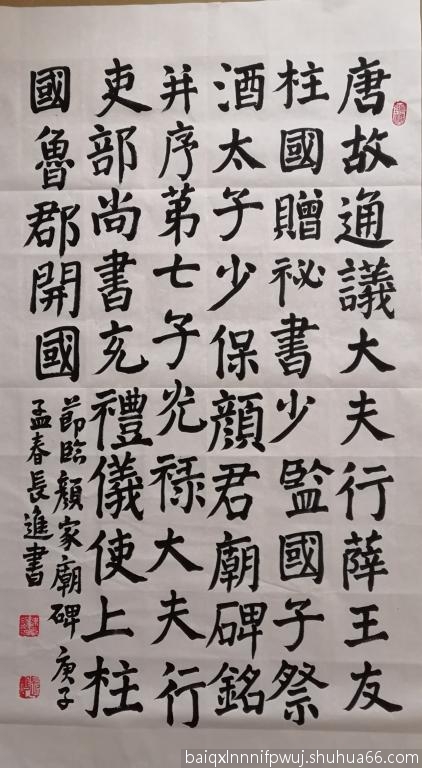 唐故通議大夫行薛王友
柱國贈祕書少監國子祭
酒太子少保顔君廟碑銘
并序第七子光禄大夫行
吏部尚書充禮儀使上柱
國魯郡開國
節臨顔家廟碑 庚子
孟春長進書
baiqxlnnnifpwuj.shuhua66.com